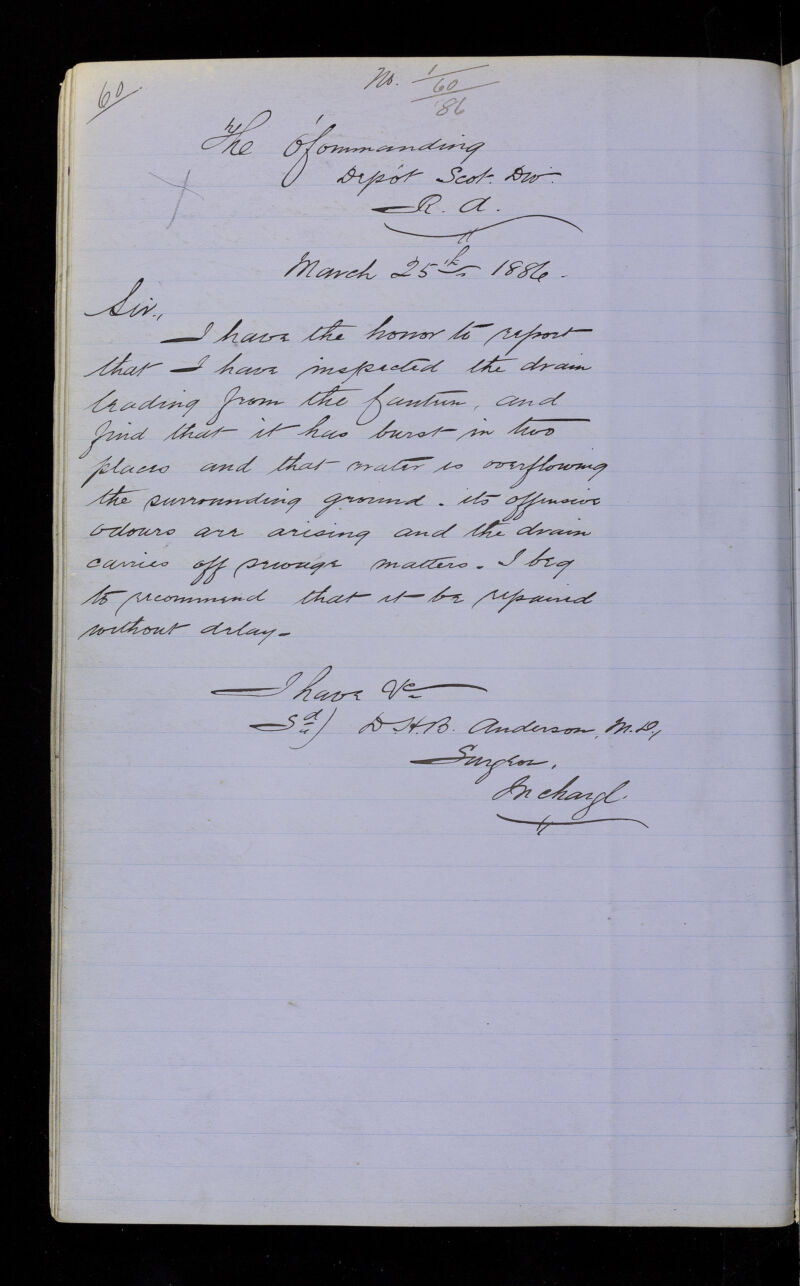 60
No. 1/60/86
The O'Commanding
Depôt Scot. Div.
R. A.
March 25th 1886.
Sir,
I have the honor to report
that I have inspected the drain
leading from the Canteen, and
find that it has burst in two
places and that water is overflowing
the surrounding ground. its offensive
odours are arising and the drain
carries off sewage matters. I beg
to recommend that it be repaired
without delay.
I have &c
Sd) D H.B. Anderson, M.D.,
Surgeon,
In charge.